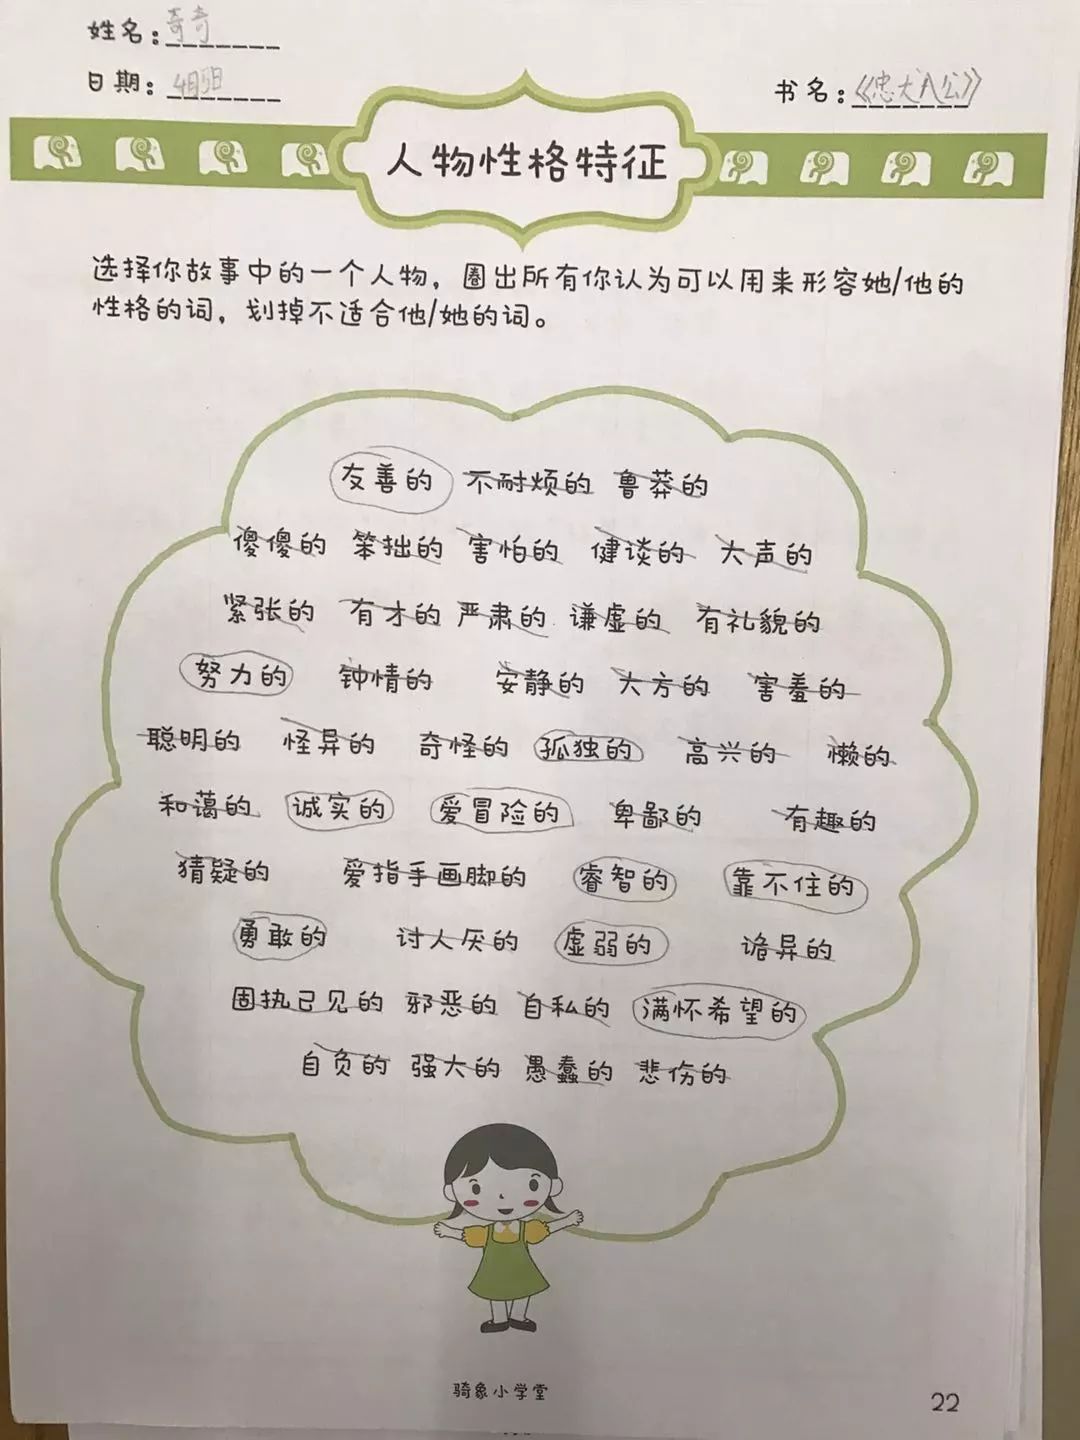 姓名:奇奇
日期:4月5日
书名:《忠犬八公》
人物性格特征
选择你故事中的一个人物，圈出所有你认为可以用来形容她/他的
性格的词，划掉不适合他/她的词。
友善的 不耐烦的 鲁莽的
傻傻的 笨拙的 害怕的 健谈的 大声的
紧张的 有才的 严肃的 谦虚的 有礼貌的
努力的 钟情的 安静的 大方的 害羞的
聪明的 怪异的 奇怪的 孤独的 高兴的 懒的
和蔼的 诚实的 爱冒险的 卑鄙的 有趣的
猜疑的 爱指手画脚的 睿智的 靠不住的
勇敢的 讨人厌的 虚弱的 诡异的
固执己见的 邪恶的 自私的 满怀希望的
自负的 强大的 愚蠢的 悲伤的
骑象小学堂
22